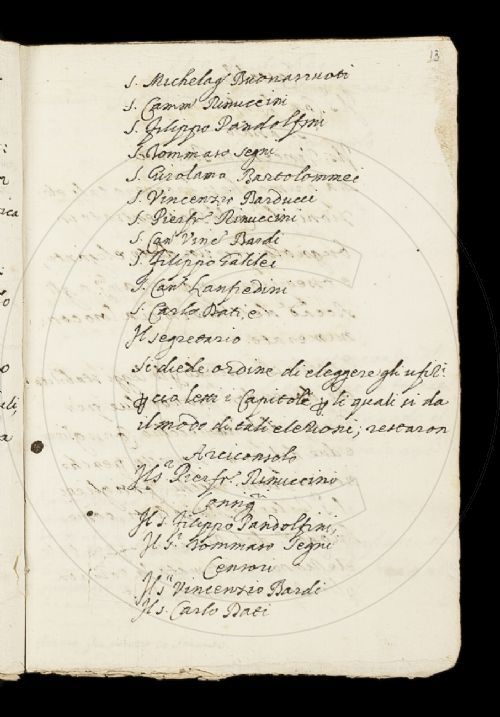 13
S. Michelag. Buonarruoti
S. Camm. Rinuccini
S. Filippo Pandolfini
S. Tommaso Segni
S. Girolamo Bartolommei
S. Vincenzio Barducci
S. Pierfr. Rinuccini
S. Can. Vinc. Bardi
S. Filippo Galilei
S. Can. Lanfredini
S. Carlo Dati, e
Il segretario
Si diede ordine di eleggere gli ufizi
ciò letti i Capitoli li quali si dà
il modo di tali elezioni; restaron
Arciconsolo
Il S. Pierfr. Rinuccino
Il S. Filippo Pandolfini,
Il S. Tommaso Segni
Censori
Il S. Vincenzio Bardi
Il S. Carlo Dati